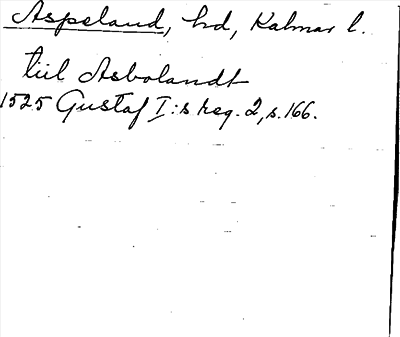 Aspeland, hd, Kalmar l.
till Asbolandt
1525 Gustaf I:s reg. 2, s. 166.